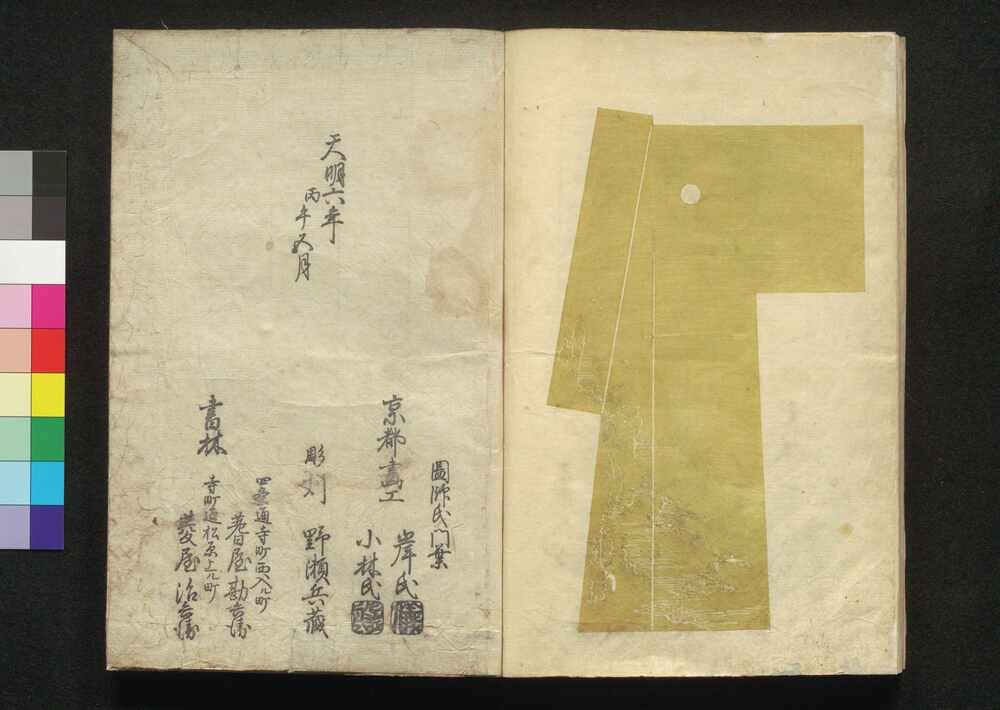 天明六年
丙午五月
圖師氏門葉
京都畵工
岸氏
小林氏
彫刻
野瀬兵藏
書林
四条通寺町西入ル町
菴屋勘兵衛
寺町通松原上ル町
菱屋治兵衛